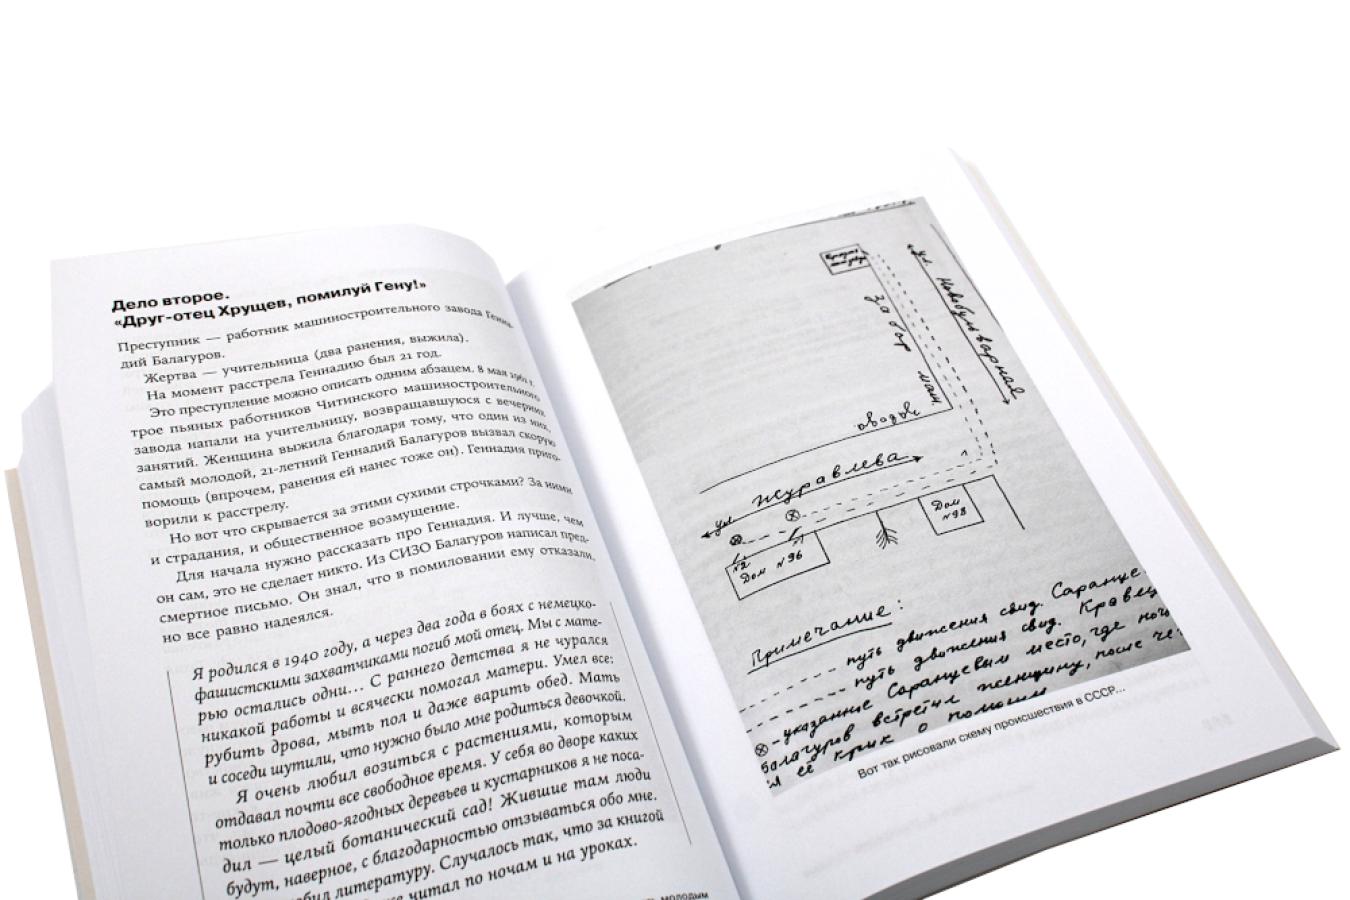 Дело второе.
«Друг-отец Хрущев, помилуй Гену!»
Преступник — работник машиностроительного завода Генна-
дий Балагуров.
Жертва — учительница (два ранения, выжила).
На момент расстрела Геннадию был 21 год.
Это преступление можно описать одним абзацем. 8 мая 1961 г.
трое пьяных работников Читинского машиностроительного
завода напали на учительницу, возвращавшуюся с вечерних
занятий. Женщина выжила благодаря тому, что один из них,
самый молодой, 21-летний Геннадий Балагуров вызвал скорую
помощь (впрочем, ранения ей нанес тоже он). Геннадия приго-
ворили к расстрелу.
Но вот что скрывается за этими сухими строчками? За ними
и страдания, и общественное возмущение.
Для начала нужно рассказать про Геннадия. И лучше, чем
он сам, это не сделает никто. Из СИЗО Балагуров написал пред-
смертное письмо. Он знал, что в помиловании ему отказали,
но все равно надеялся.
Я родился в 1940 году, а через два года в боях с немецко-
фашистскими захватчиками погиб мой отец. Мы с мате-
рью остались одни... С раннего детства я не чурался
никакой работы и всячески помогал матери. Умел все:
рубить дрова, мыть пол и даже варить обед. Мать
и соседи шутили, что нужно было мне родиться девочкой.
Я очень любил возиться с растениями, которым
отдавал почти все свободное время. У себя во дворе каких
только плодово-ягодных деревьев и кустарников я не поса-
дил — целый ботанический сад! Жившие там люди
будут, наверное, с благодарностью отзываться обо мне.
литературу. Случалось так, что за книгой
читал по ночам и на уроках.
молодым
ул. Новобульварная
Забор маш.
заводов
ул. Журавлева
Дом №98
№2
Дом №96
Примечание:
- - - - - путь движения свид. Саранце
- - - - - путь движения свид. Кравец
⊗ - указанное Саранцевым место, где ноч
Балагуров встретил женщину, после че-
её крик о помощи
Вот так рисовали схему происшествия в СССР...